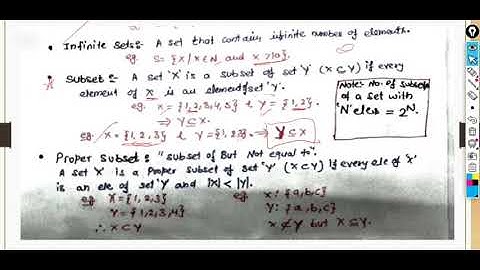 • Infinite Sets:- A set that contain infinite number of elements.
eg. S= {x / x ∈ N and x >10}.
• Subset:- A set 'X' is a subset of set 'Y' (X ⊆ Y) if every
element of X is an element of set 'Y'.
eg. X = {1,2,3,4,5} & Y = {1,2}.
⇒ Y ⊆ X.
eg. X = {1,2,3} & Y = {1,2,3} ⇒ Y ⊆ X
Note:- No. of subsets
of a set with
'N' elem = 2^N.
• Proper Subset:- "Subset of But Not equal to".
A set 'X' is a Proper Subset of Set 'Y' (X ⊂ Y) if every ele of 'X'
is an ele of set Y and |X| < |Y|.
eg X = {1,2,3}
Y = {1,2,3,4}
∴ X ⊂ Y
eg X: {a,b,c}
Y: {a,b,c}
X ⊄ Y but X ⊆ Y.